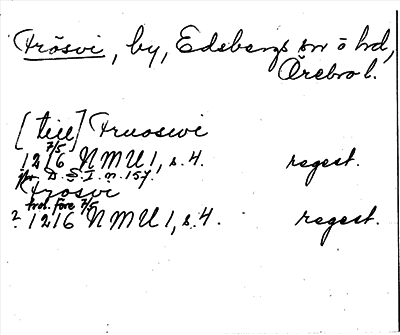 Frösvi, by, Edsbergs sn o hd,
Örebro l.
[till] Fruoswi
7/5
1216 NMU 1, s. 4. regest.
jfr D.S.I. n. 157.
Frösvi
trol. före 7/5
? 1216 NMU 1, s. 4. regest.